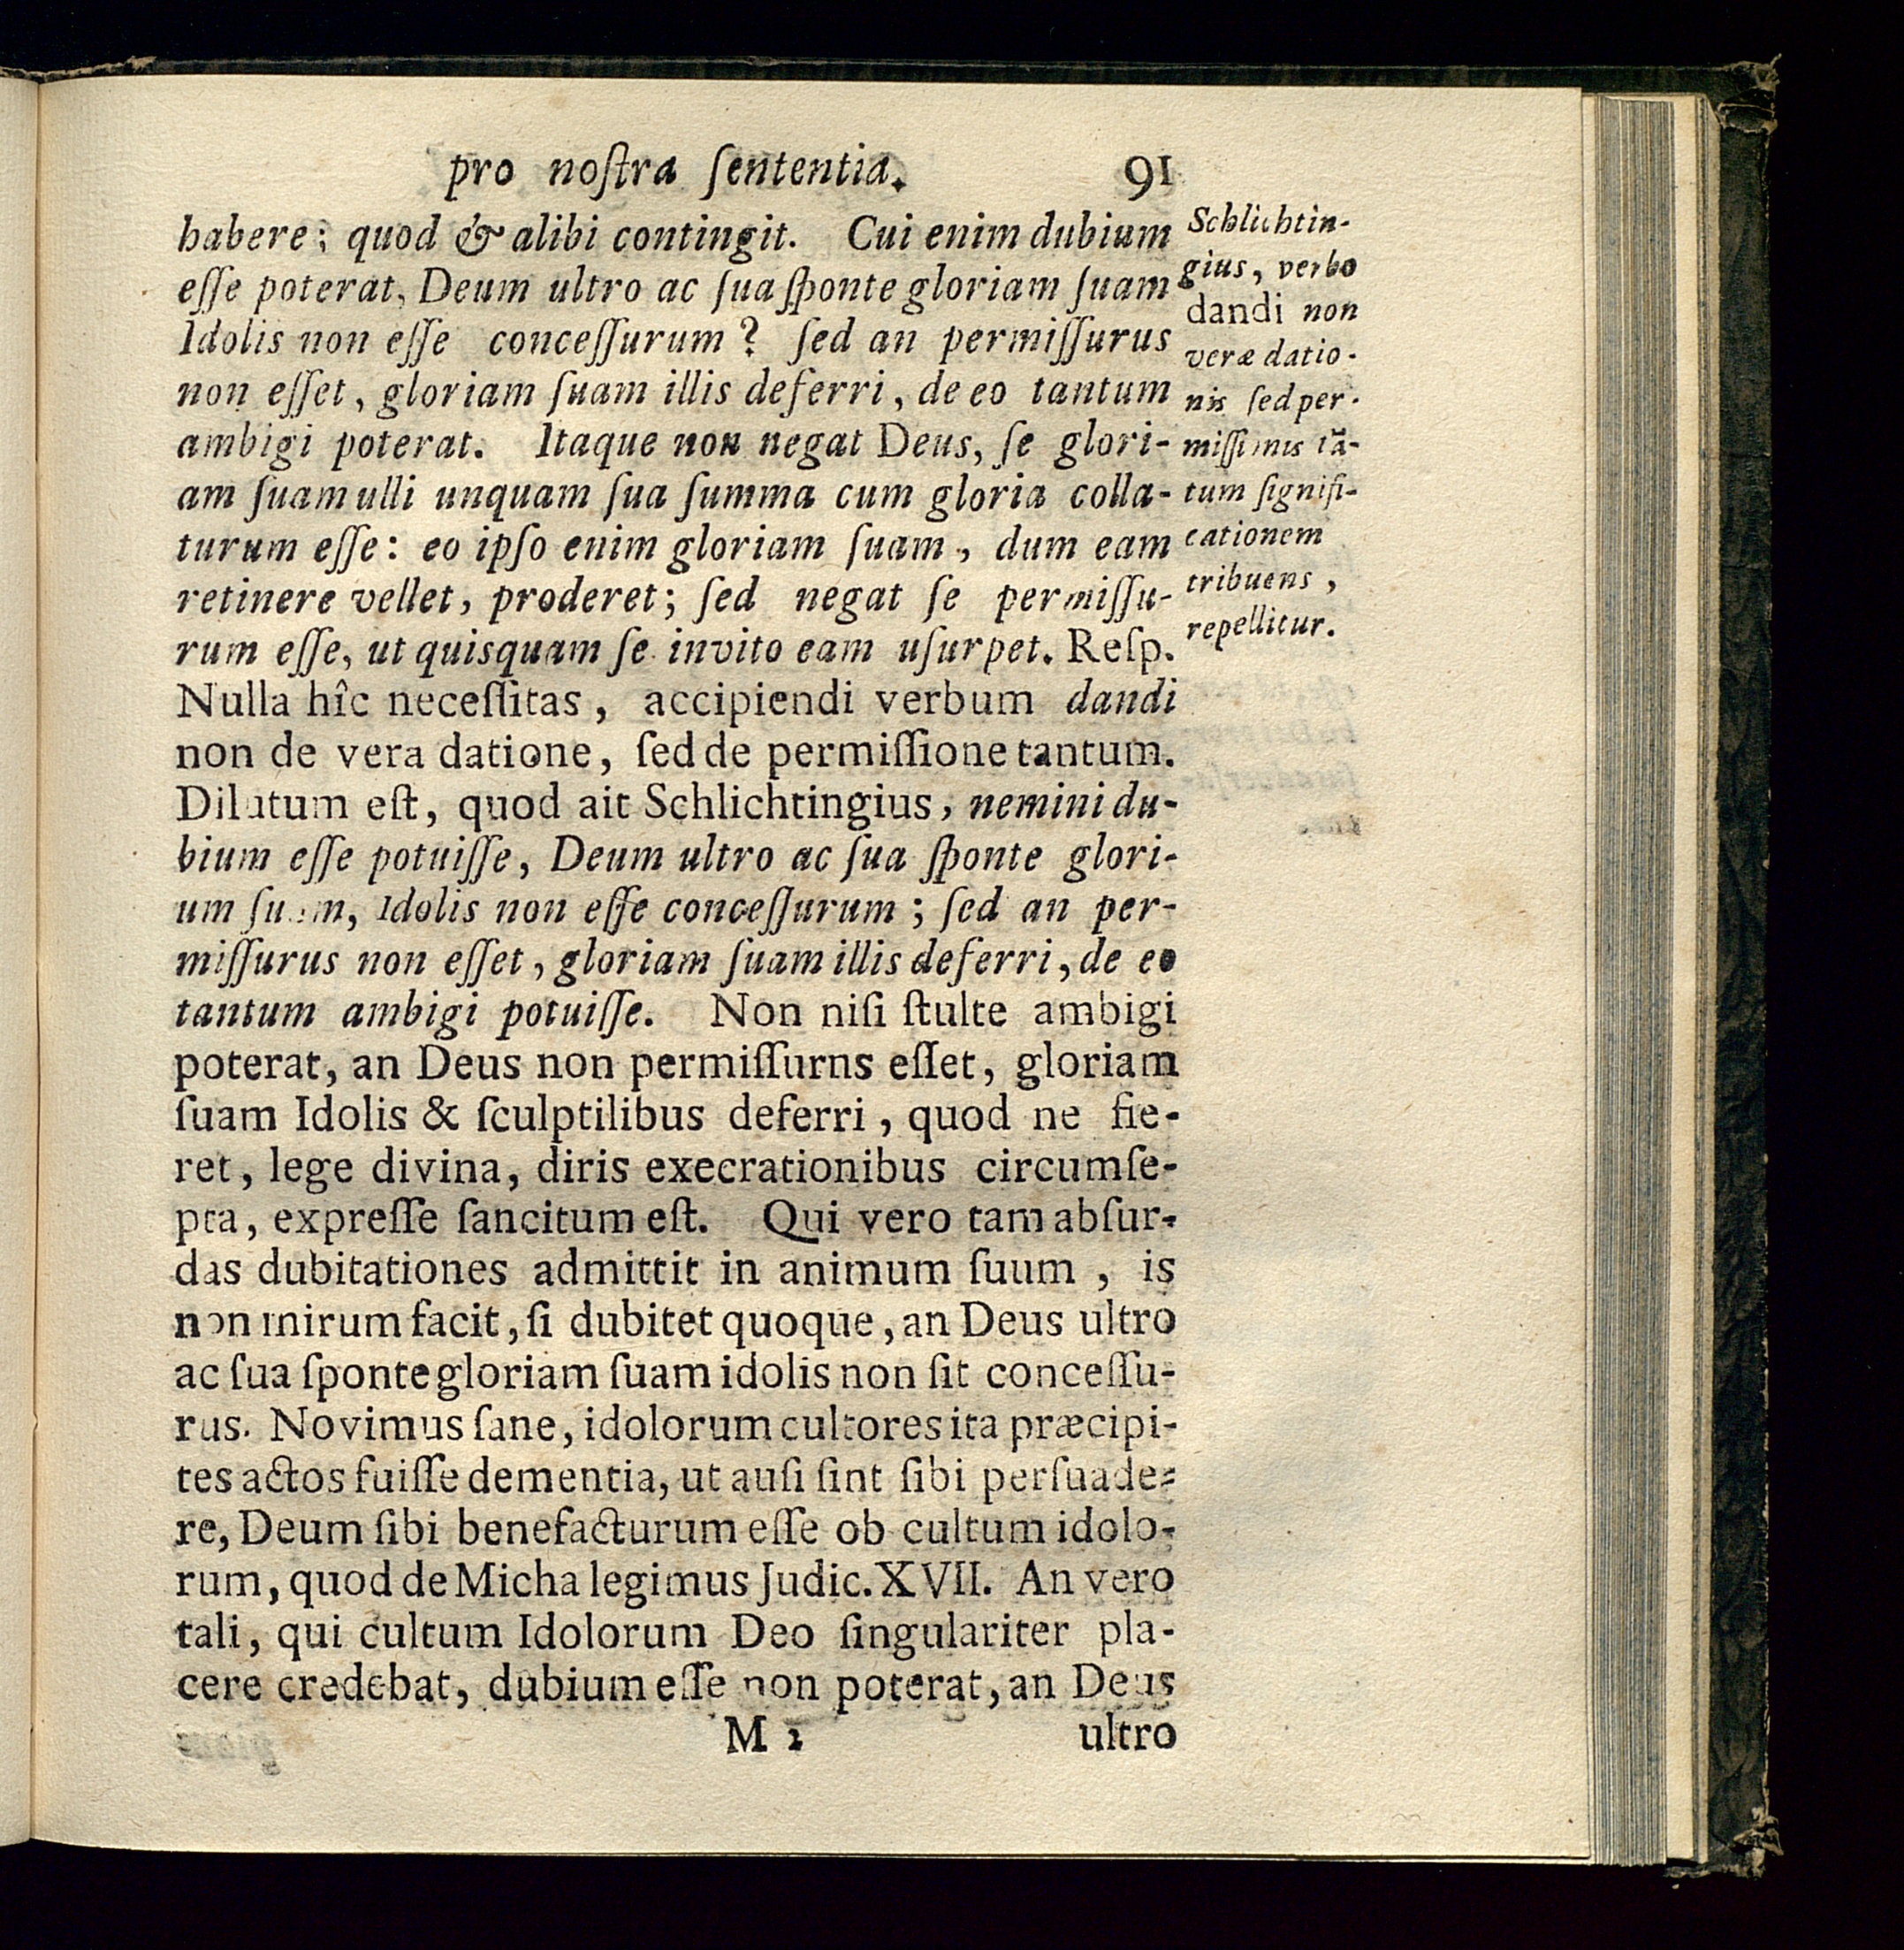 pro noſtra ſententia. 91
habere; quod & alibi contingit. Cui enim dubium
eſſe poterat, Deum ultro ac ſua ſponte gloriam ſuam
Idolis non eſſe conceſſurum? ſed an permiſſurus
non eſſet, gloriam ſuam illis deferri, de eo tantum
ambigi poterat. Itaque non negat Deus, ſe glori-
am ſuam ulli unquam ſua ſumma cum gloria colla-
turum eſſe: eo ipſo enim gloriam ſuam, dum eam
retinere vellet, proderet; ſed negat ſe permiſſu-
rum eſſe, ut quisquam ſe invito eam uſurpet. Reſp.
Nulla hîc neceſſitas, accipiendi verbum dandi
non de vera datione, ſed de permiſſione tantum.
Dilutum eſt, quod ait Schlichtingius, nemini du-
bium eſſe potuiſſe, Deum ultro ac ſua ſponte glori-
um ſuam, Idolis non eſſe conceſſurum; ſed an per-
miſſurus non eſſet, gloriam ſuam illis deferri, de eo
tantum ambigi potuiſſe. Non niſi ſtulte ambigi
poterat, an Deus non permiſſurns eſſet, gloriam
ſuam Idolis & ſculptilibus deferri, quod ne fie-
ret, lege divina, diris execrationibus circumſe-
pta, expreſſe ſancitum eſt. Qui vero tam abſur-
das dubitationes admittit in animum ſuum, is
non mirum facit, ſi dubitet quoque, an Deus ultro
ac ſua ſponte gloriam ſuam idolis non ſit conceſſu-
rus. Novimus ſane, idolorum cultores ita præcipi-
tes actos fuiſſe dementia, ut auſi ſint ſibi perſuade-
re, Deum ſibi benefacturum eſſe ob cultum idolo-
rum, quod de Micha legimus Judic. XVII. An vero
tali, qui cultum Idolorum Deo ſingulariter pla-
cere credebat, dubium eſſe non poterat, an Deus
M 2 ultro
Schlichtin-
gius, verbo
dandi non
veræ datio-
nis ſed per-
miſſionis tā-
tum ſignifi-
cationem
tribuens,
repellitur.